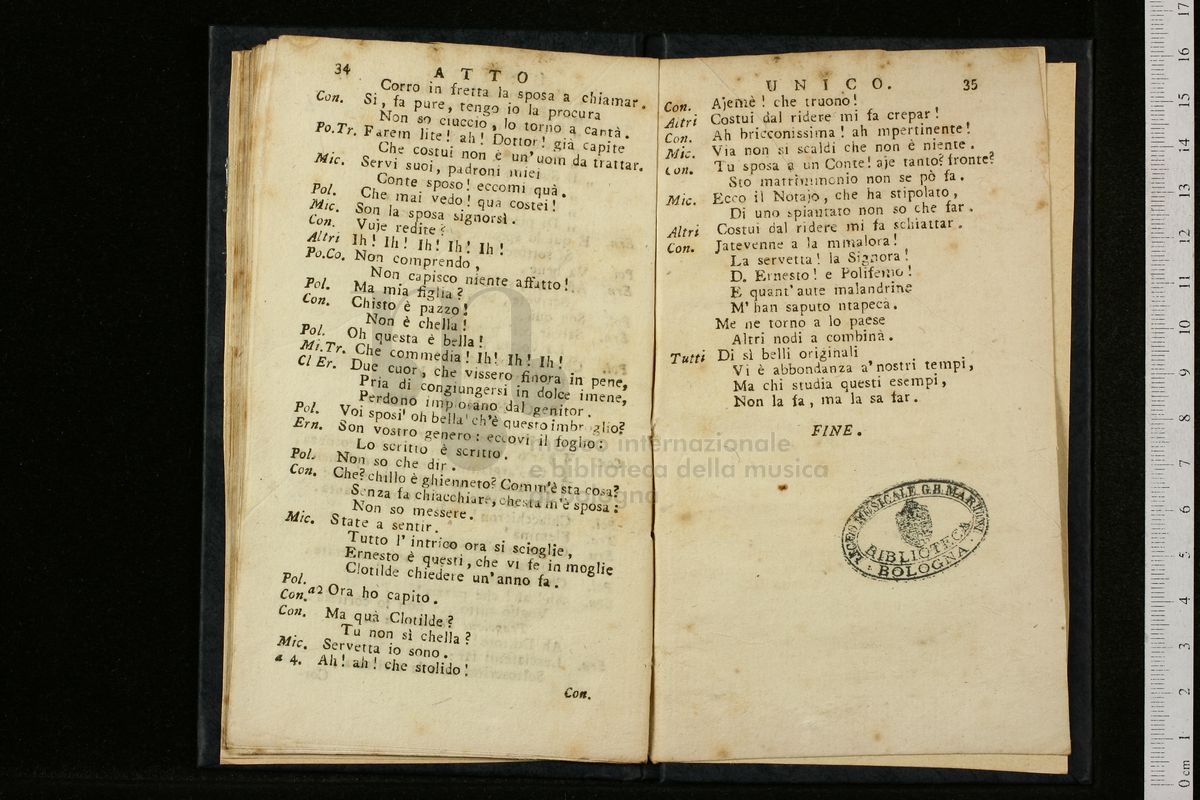 34
ATTO
Corro in fretta la sposa a chiamar.
Con. Si, fa pure, tengo io la procura
Non so ciuccio, lo torno a cantà.
Po.Tr. Farem lite! ah! Dottor! già capite
Che costui non è un'uom da trattar.
Mic. Servi suoi, padroni miei
Conte sposo! eccomi quà.
Pol. Che mai vedo! qua costei!
Mic. Son la sposa signorsì.
Con. Vuje redite?
Altri Ih! Ih! Ih! Ih! Ih!
Po.Co. Non comprendo,
Non capisco niente affatto!
Pol. Ma mia figlia?
Con. Chisto è pazzo!
Non è chella!
Pol. Oh questa è bella!
Mi.Tr. Che commedia! Ih! Ih! Ih!
Cl Er. Due cuor, che vissero finora in pene,
Pria di congiungersi in dolce imene,
Perdono implorano dal genitor.
Pol. Voi sposi' oh bella' ch'è questo imbroglio?
Ern. Son vostro genero: eccovi il foglio:
Lo scritto è scritto.
Pol. Non so che dir.
Con. Che? chillo è ghienneto? Comm'è sta cosa?
Senza fa chiacchiare, chesta m'è sposa:
Non so messere.
Mic. State a sentir.
Tutto l' intrico ora si scioglie,
Ernesto è questi, che vi fe in moglie
Clotilde chiedere un'anno fa.
Pol.
Con. a2 Ora ho capito.
Con. Ma quà Clotilde?
Tu non sì chella?
Mic. Servetta io sono.
a 4. Ah! ah! che stolido!
Con.
UNICO. 35
Con. Ajemè! che truono!
Altri Costui dal ridere mi fa crepar!
Con. Ah bricconissima! ah mpertinente!
Mic. Via non si scaldi che non è niente.
Con. Tu sposa a un Conte! aje tanto? fronte?
Sto matrimmonio non se pò fa.
Mic. Ecco il Notajo, che ha stipolato,
Di uno spiantato non so che far.
Altri Costui dal ridere mi fa schiattar.
Con. Jatevenne a la mmalora!
La servetta! la Signora!
D. Ernesto! e Polifemo!
E quant' aute malandrine
M' han saputo ntapeca.
Me ne torno a lo paese
Altri nodi a combinà.
Tutti Di sì belli originali
Vi è abbondanza a' nostri tempi,
Ma chi studia questi esempi,
Non la fa, ma la sa far.
FINE.
museo internazionale
e biblioteca della musica
di bologna
LICEO MUSICALE G.B. MARTINI
BIBLIOTECA
BOLOGNA
0 cm 1 2 3 4 5 6 7 8 9 10 11 12 13 14 15 16 17